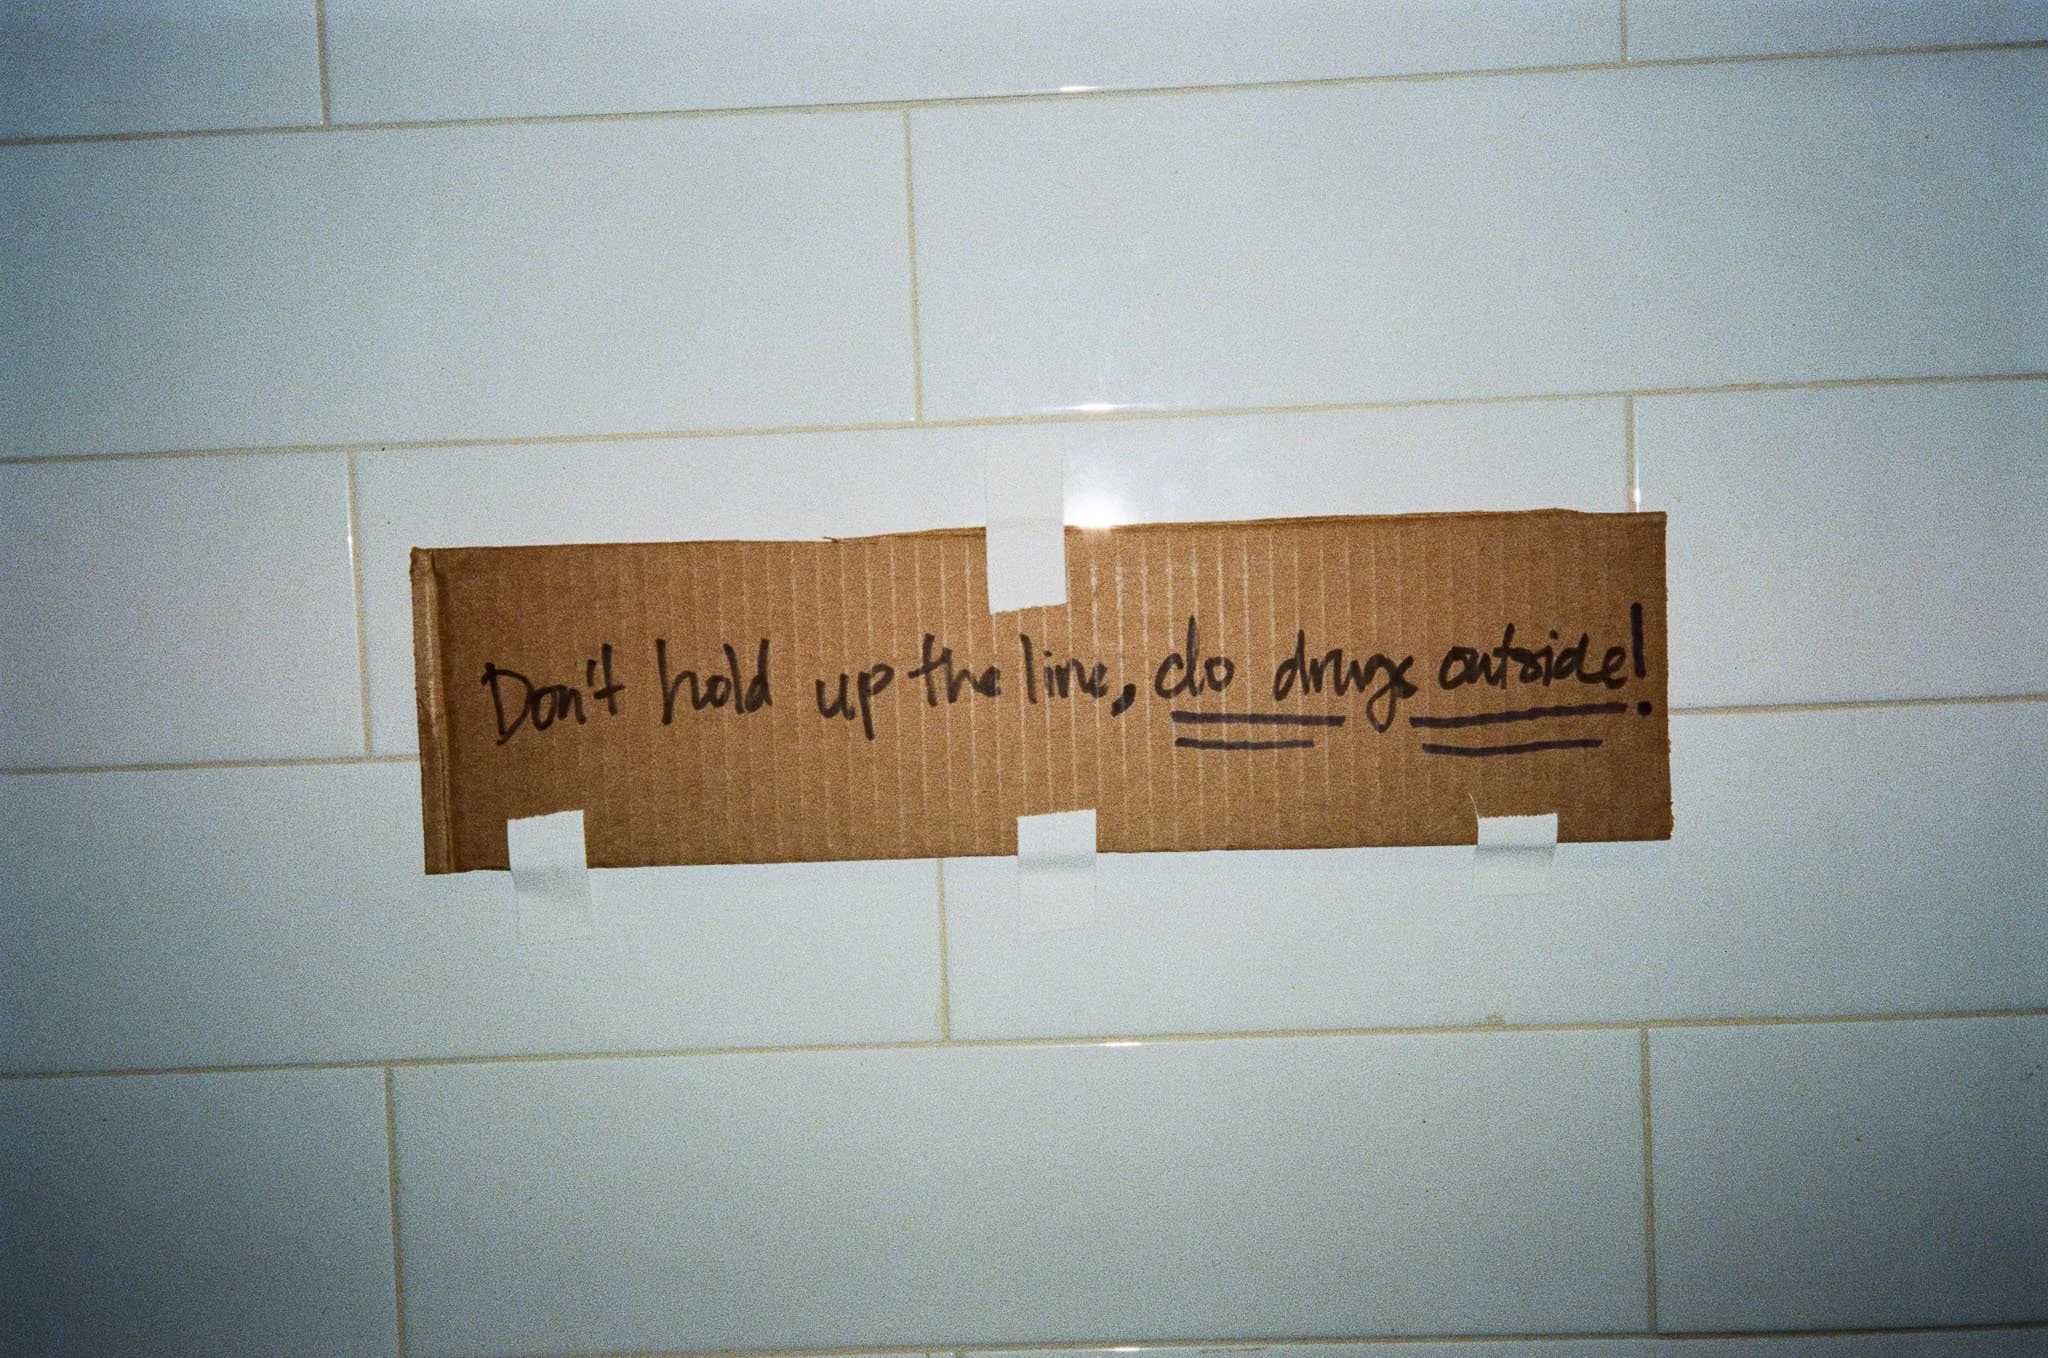 Don't hold up the line, do drugs outside!